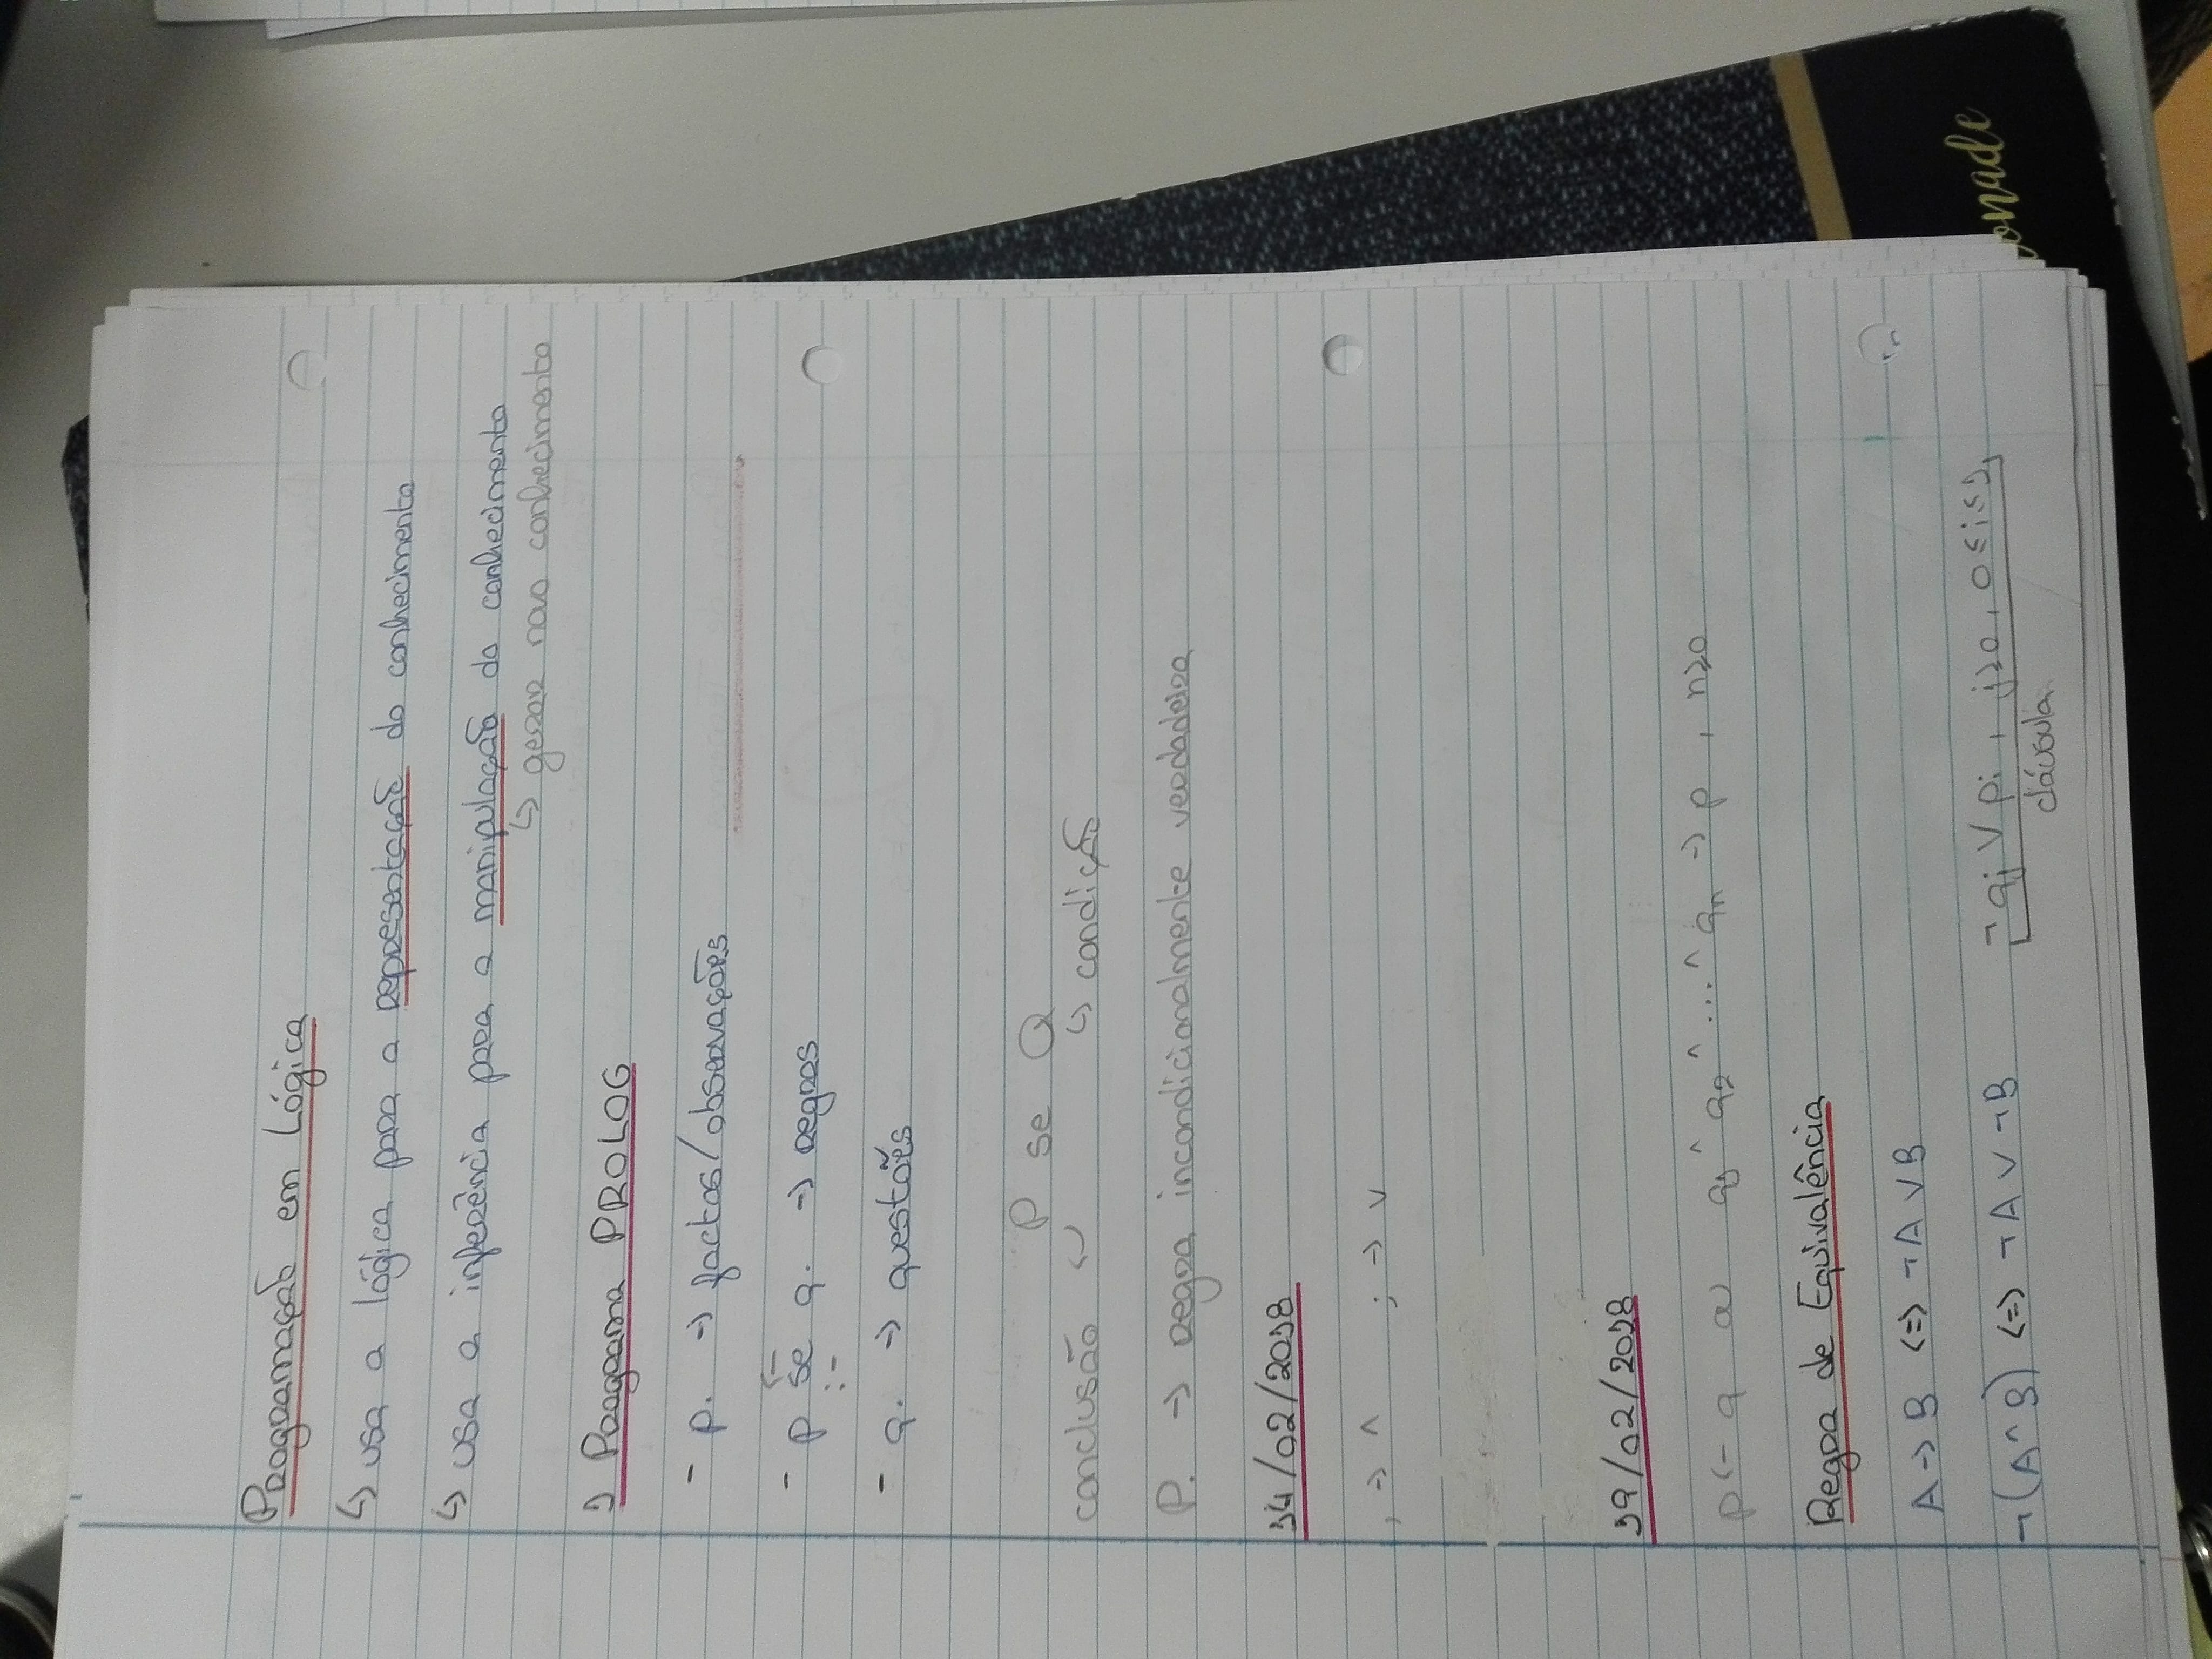 Programação em Lógica
↳ usa a lógica para a representação do conhecimento
↳ usa a inferência para a manipulação do conhecimento
↳ gerar novo conhecimento
1 Programa PROLOG
- p. → factos/observações
- p se q. → regras
←
:-
- q. → questões
P se Q
conclusão ↵ ↳ condição
P. → regra incondicionalmente verdadeira
14/02/2018
, → ^ ; → v
19/02/2018
p ← q ou q1 ^ q2 ^ .... ^ qn → p , n≥0
Regra de Equivalência
A → B <=> ¬A V B
¬(A ^ B) <=> ¬A V ¬B ¬qj V pi , j≥0 , 0≤i≤1
cláusula
onade